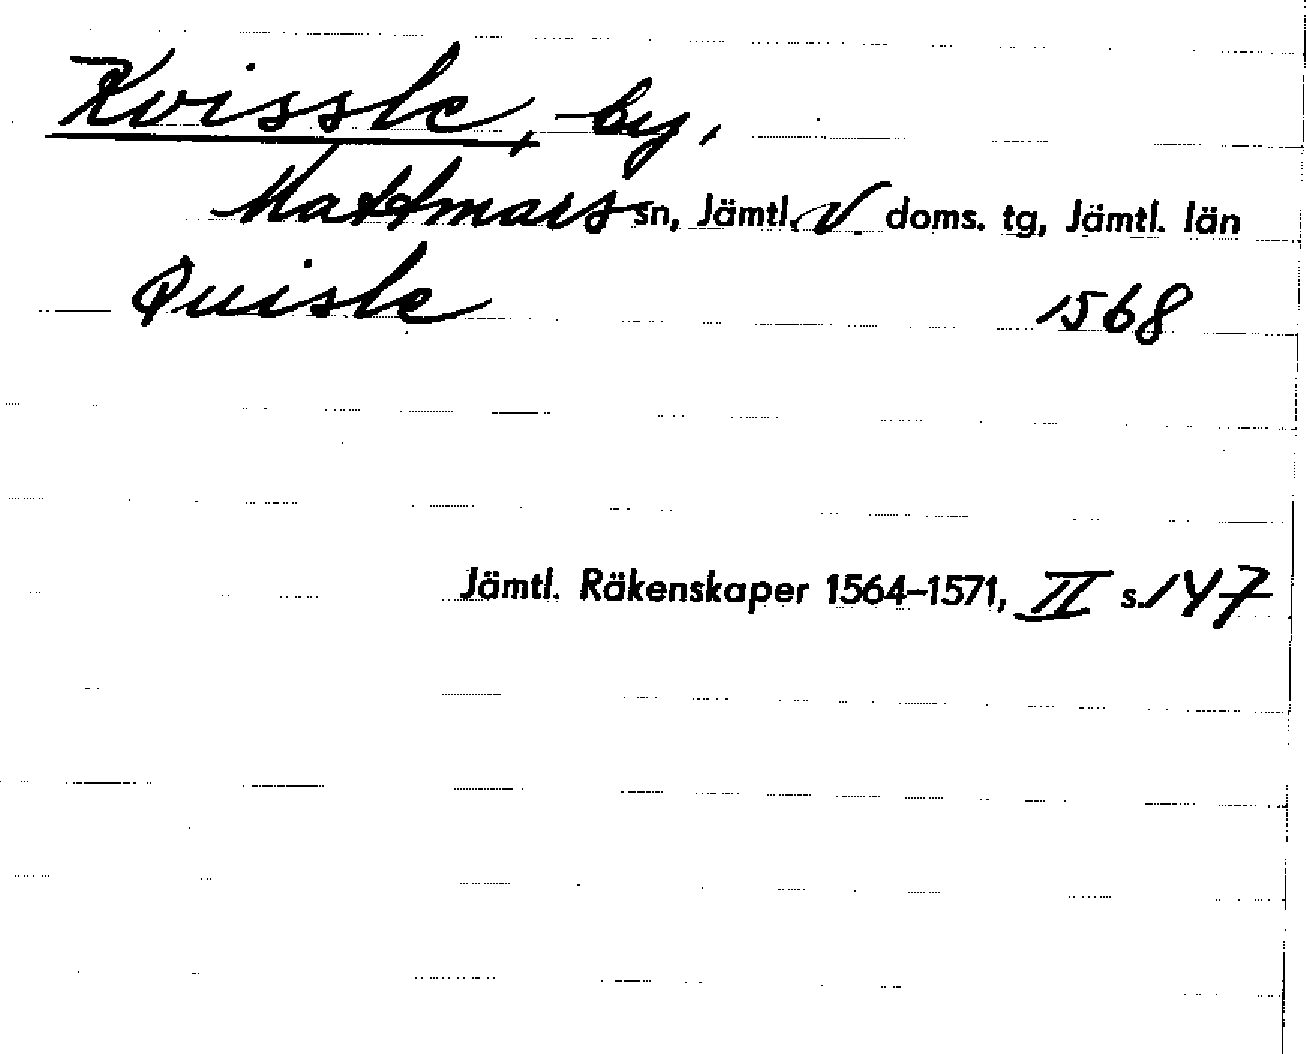 Kvissle, by,
Mattmars sn, Jämtl. V. doms. tg, Jämtl. län
Quisle 1568
Jämtl. Räkenskaper 1564–1571, II s. 147